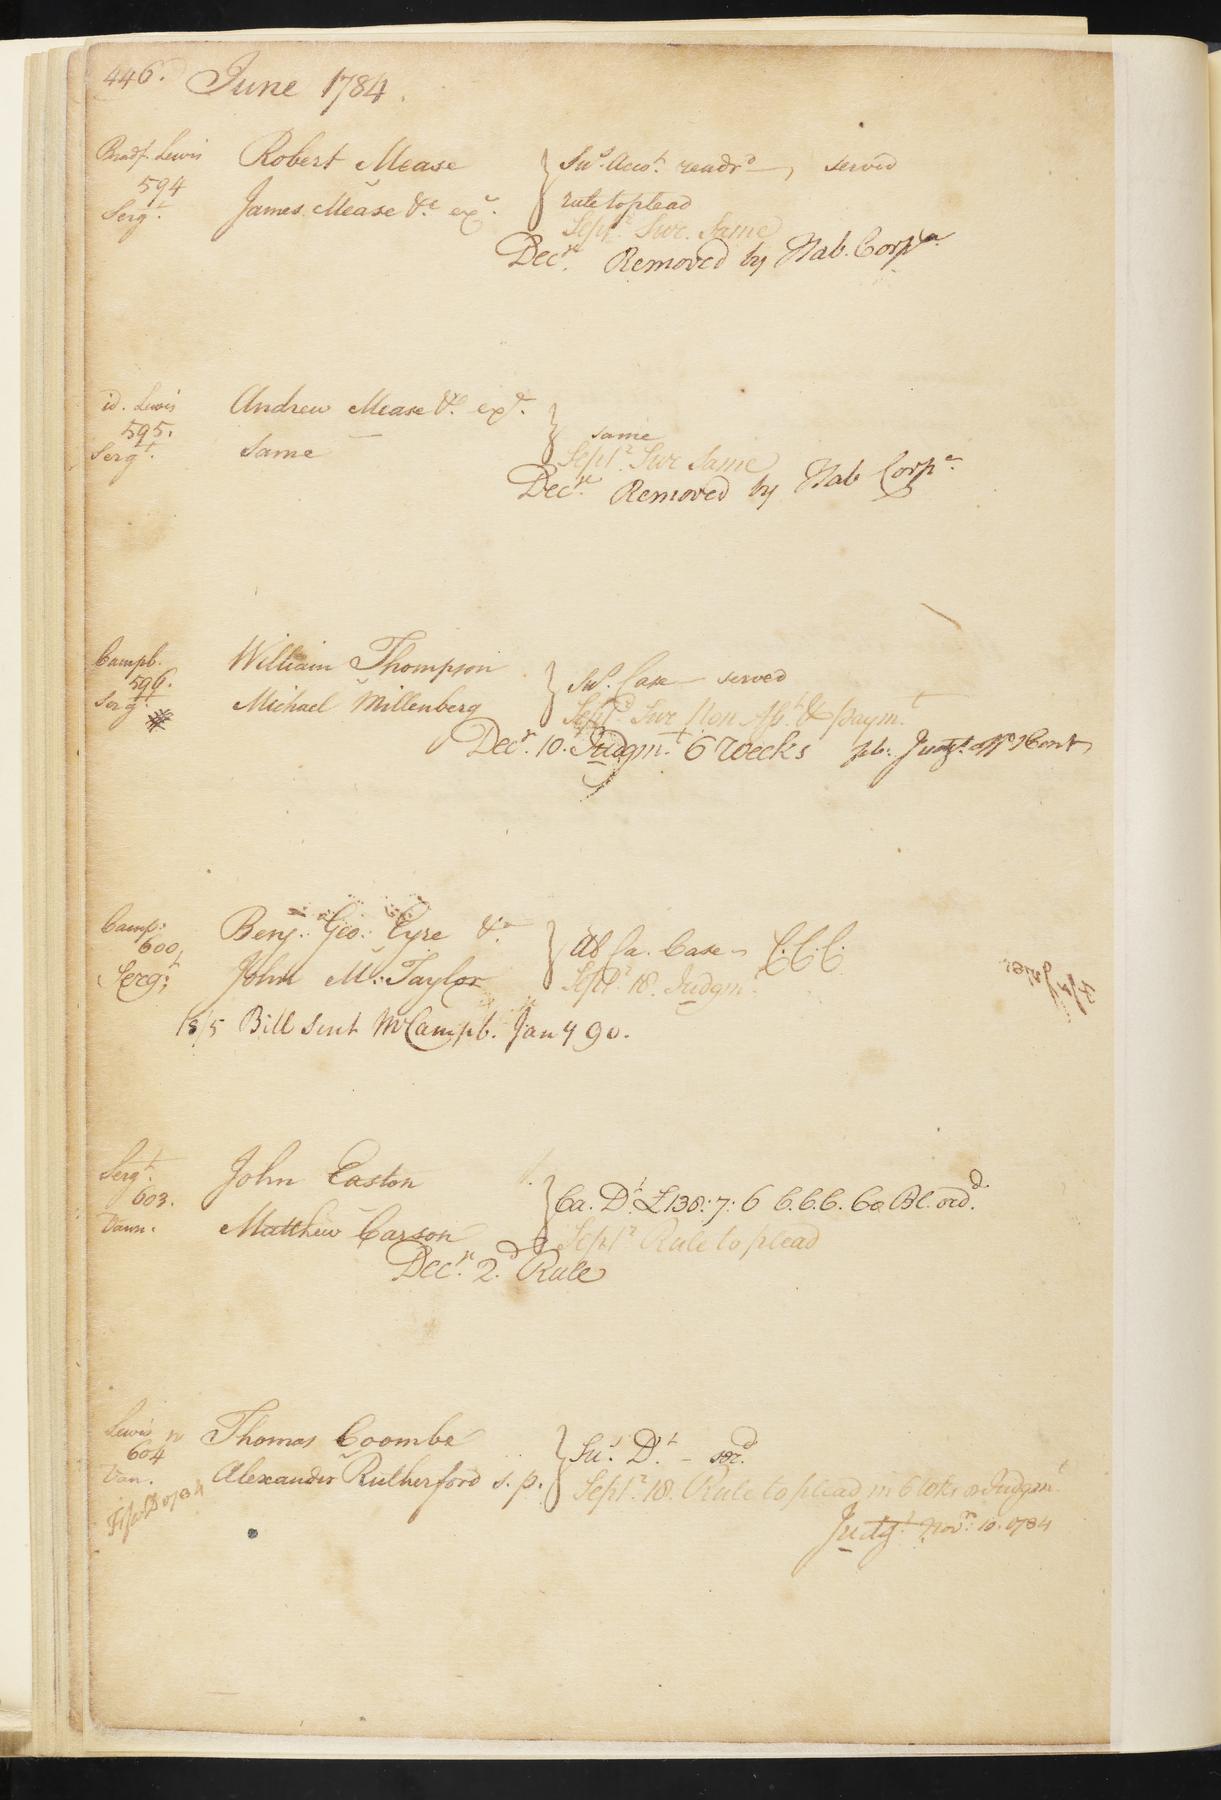 446. June 1784.
Bradf. Lewis Robert Mease } Sus. Acco.t rendr.d served
594
Serg.t James Mease &c ex.r rule to plead
Sept.r Sur. Same
Dec.r Removed by Hab. Corp.a
id. Lewis Andrew Mease &c ex.r }
595. same
Serg.t Same Sept.r Sur Same
Dec.r Removed by Hab Corp.a
Campb. William Thompson } Sus. Case served
596.
Serg.t Michael Millenberg Sept.r Sur Non Ass.t & paym.t
Dec.r 10. Judgm.t 6 Weeks
Camp: Benj. Geo: Eyre &c } Al Ca. Case C.C.C.
600,
Serg.t John Mc: Taylor Sept.r 18. Judgm.t
18/5 Bill sent Mr Campb. Jan 4 90.
Serg.t John Easton } Ca. D.t £138:7:6 C.C.C. Co Bl. ord.d
603.
Vann. Matthew Carson Sept.r Rule to plead
Dec.r 2.d Rule
Lewis Thomas Coombe } Su.s D.t ser.d
604
Van. Alexander Rutherford s. p. Sept.r 18. Rule to plead in 6 Wks or Judgm.t
Judg.t Nov.r 10. 1784